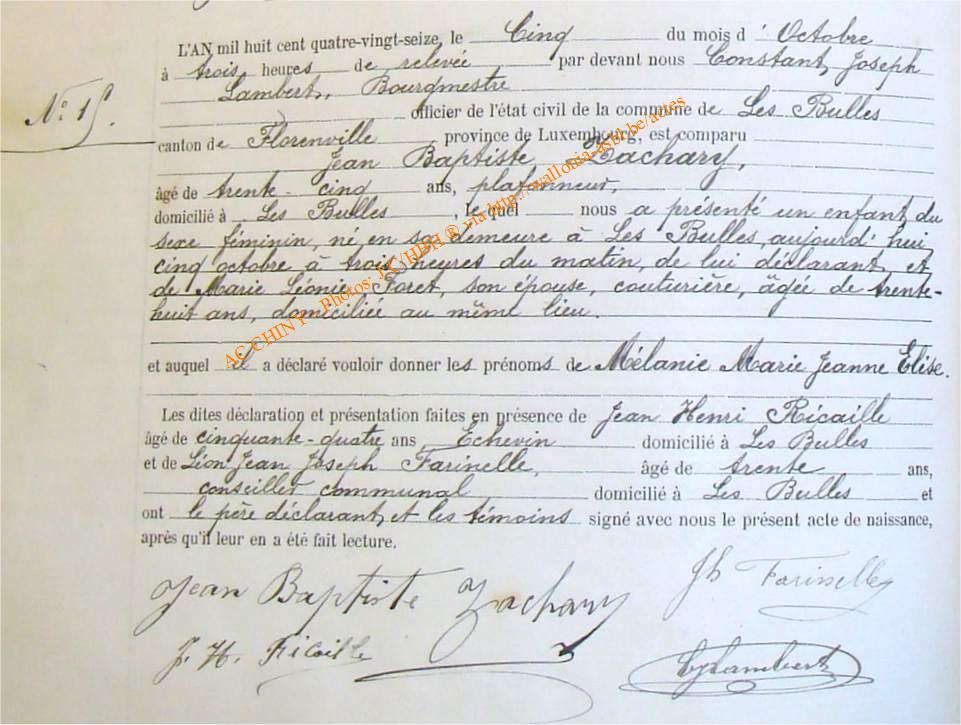 L'AN mil huit cent quatre-vingt-seize, le Cinq du mois d'Octobre
à trois heures de relevée par devant nous Constant, Joseph
Lambert, Bourgmestre
N°. 15. officier de l'état civil de la commune de Les Bulles
canton de Florenville province de Luxembourg, est comparu
Jean Baptiste, Zachary,
âgé de trente-cinq ans, plafonneur,
domicilié à Les Bulles, lequel nous a présenté un enfant du
sexe féminin, né, en sa demeure à Les Bulles, aujourd'hui
cinq octobre à trois heures du matin, de lui déclarant, et
de Marie Léonie Foret, son épouse, couturière, âgée de trente-
huit ans, domiciliée au même lieu.
et auquel il a déclaré vouloir donner les prénoms de Mélanie Marie Jeanne Élise.
Les dites déclaration et présentation faites en présence de Jean Henri Ricaille
âgé de cinquante-quatre ans, Échevin domicilié à Les Bulles
et de Léon Jean Joseph Farinelle, âgé de trente ans,
conseiller communal domicilié à Les Bulles et
ont le père déclarant, et les témoins signé avec nous le présent acte de naissance,
après qu'il leur en a été fait lecture.
Jean Baptiste Zachary Jh Farinelle
J. H. Ricaille Lambert
AC CHINY - Photos: via http://wallonia-asbl.be/actes